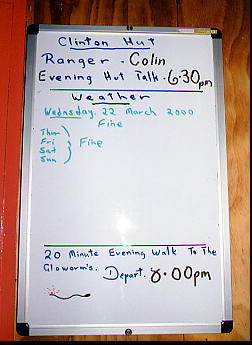 Clinton Hut
Ranger - Colin
Evening Hut Talk - 6.30pm
Weather
Wednesday. 22 March 2000
Fine
Thur
Fri
Sat
Sun
Fine
20 Minute Evening Walk To The
Gloworm's. Depart. 8.00pm